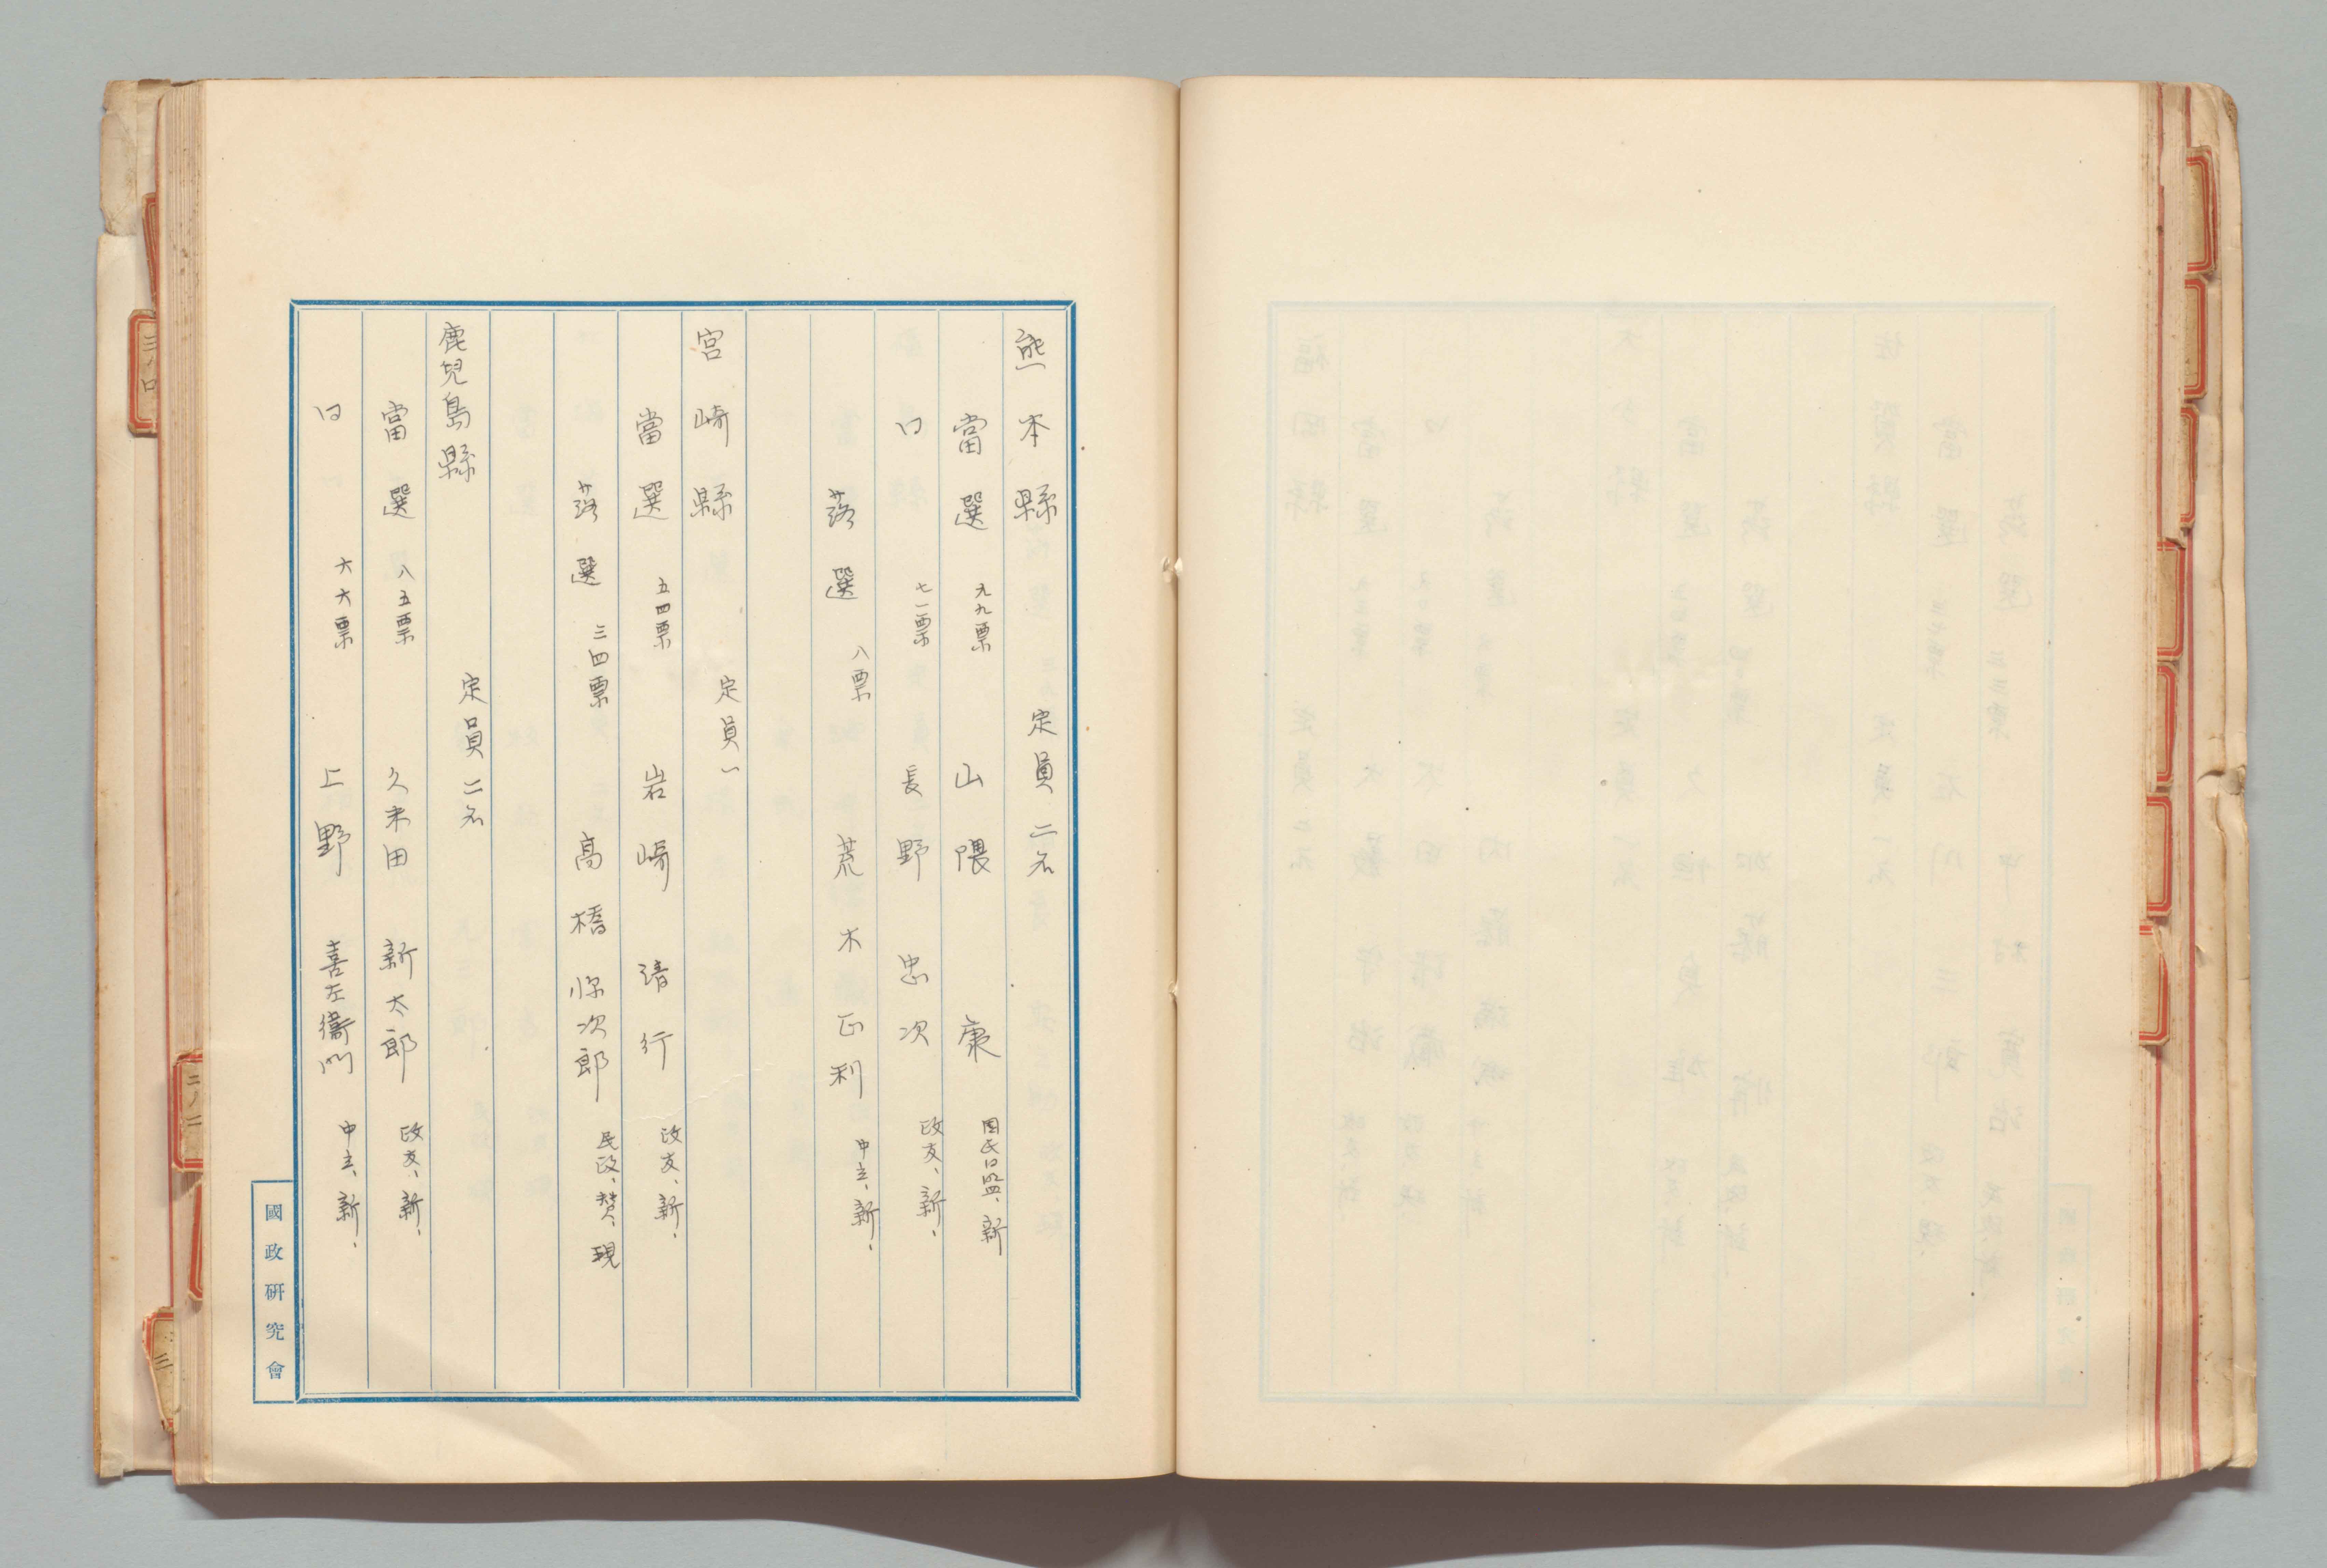 熊本縣 定員二名
當選 九九票 山隈康 国民同盟、新
〃 七一票 長野忠次 政友、新、
落選 八票 荒木正利 中立、新、
宮崎縣 定員一
當選 五四票 岩崎清行 政友、新、
落選 三四票 高橋弥次郎 民政、賛、現
鹿兒島縣 定員二名
當選 八五票 久米田新太郎 政友、新、
同 六六票 上野喜左衛門 中立、新、
國政研究會
三ノ口
二ノ二
三